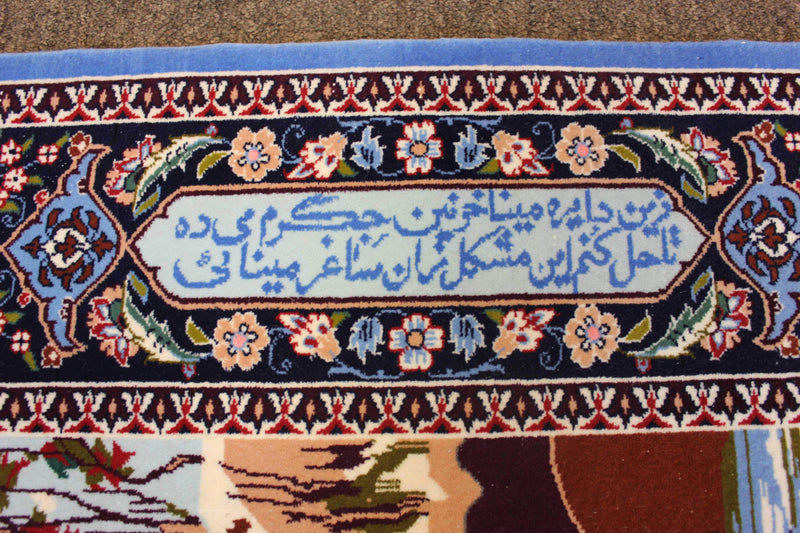 زین دایره مینا خونین جگرم می ده
تا حل کنم این مشکل زان ساغر مینائی